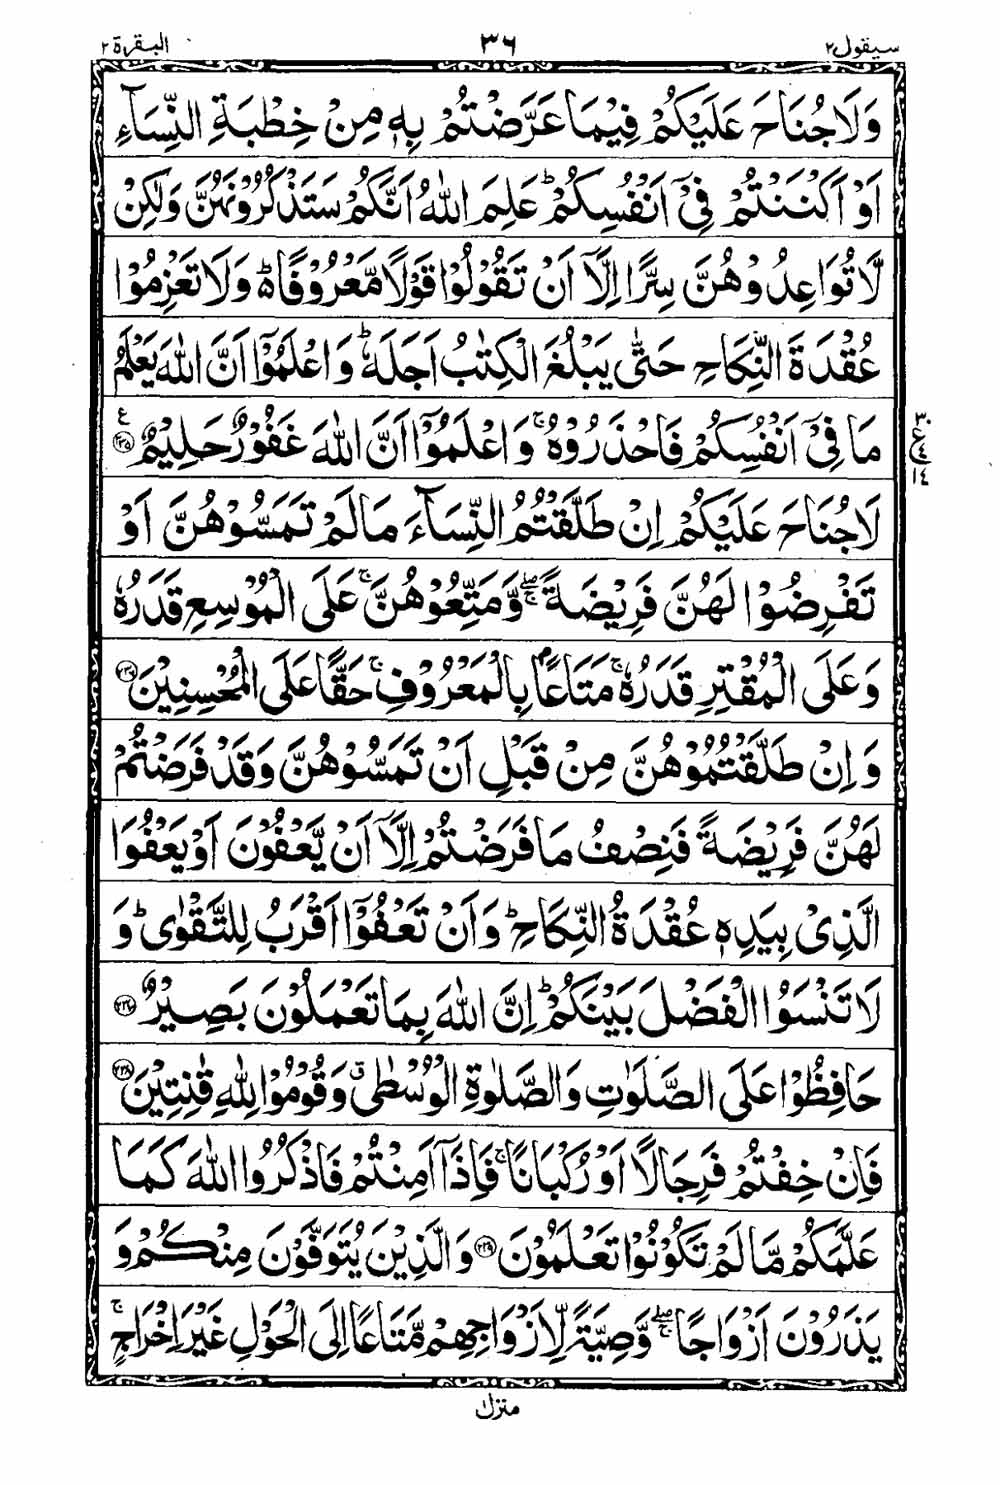 سيقول ٢ ٣٦ البقرة ٢
وَلَا جُنَاحَ عَلَيْكُمْ فِيْمَا عَرَّضْتُمْ بِهٖ مِنْ خِطْبَةِ النِّسَآءِ
اَوْ اَكْنَنْتُمْ فِيْٓ اَنْفُسِكُمْ ؕ عَلِمَ اللّٰهُ اَنَّكُمْ سَتَذْكُرُوْنَهُنَّ وَلٰكِنْ
لَّا تُوَاعِدُوْهُنَّ سِرًّا اِلَّآ اَنْ تَقُوْلُوْا قَوْلًا مَّعْرُوْفًا ؕ۬ وَلَا تَعْزِمُوْا
عُقْدَةَ النِّكَاحِ حَتّٰى يَبْلُغَ الْكِتٰبُ اَجَلَهٗ ؕ وَاعْلَمُوْٓا اَنَّ اللّٰهَ يَعْلَمُ
مَا فِيْٓ اَنْفُسِكُمْ فَاحْذَرُوْهُ ۚ وَاعْلَمُوْٓا اَنَّ اللّٰهَ غَفُوْرٌ حَلِيْمٌ ﴿٢٣٥﴾ ع
لَا جُنَاحَ عَلَيْكُمْ اِنْ طَلَّقْتُمُ النِّسَآءَ مَا لَمْ تَمَسُّوْهُنَّ اَوْ
تَفْرِضُوْا لَهُنَّ فَرِيْضَةً ۖۚ وَّمَتِّعُوْهُنَّ ۚ عَلَى الْمُوْسِعِ قَدَرُهٗ
وَعَلَى الْمُقْتِرِ قَدَرُهٗ ۚ مَتَاعًاۢ بِالْمَعْرُوْفِ ۚ حَقًّا عَلَى الْمُحْسِنِيْنَ ﴿٢٣٦﴾
وَاِنْ طَلَّقْتُمُوْهُنَّ مِنْ قَبْلِ اَنْ تَمَسُّوْهُنَّ وَقَدْ فَرَضْتُمْ
لَهُنَّ فَرِيْضَةً فَنِصْفُ مَا فَرَضْتُمْ اِلَّآ اَنْ يَّعْفُوْنَ اَوْ يَعْفُوَا
الَّذِيْ بِيَدِهٖ عُقْدَةُ النِّكَاحِ ؕ وَاَنْ تَعْفُوْٓا اَقْرَبُ لِلتَّقْوٰى ؕ وَ
لَا تَنْسَوُا الْفَضْلَ بَيْنَكُمْ ؕ اِنَّ اللّٰهَ بِمَا تَعْمَلُوْنَ بَصِيْرٌ ﴿٢٣٧﴾
حَافِظُوْا عَلَى الصَّلَوٰتِ وَالصَّلٰوةِ الْوُسْطٰى ۗ وَقُوْمُوْا لِلّٰهِ قٰنِتِيْنَ ﴿٢٣٨﴾
فَاِنْ خِفْتُمْ فَرِجَالًا اَوْ رُكْبَانًا ۚ فَاِذَآ اَمِنْتُمْ فَاذْكُرُوا اللّٰهَ كَمَا
عَلَّمَكُمْ مَّا لَمْ تَكُوْنُوْا تَعْلَمُوْنَ ﴿٢٣٩﴾ وَالَّذِيْنَ يُتَوَفَّوْنَ مِنْكُمْ وَ
يَذَرُوْنَ اَزْوَاجًا ۖۚ وَّصِيَّةً لِّاَزْوَاجِهِمْ مَّتَاعًا اِلَى الْحَوْلِ غَيْرَ اِخْرَاجٍ ۚ
منزل